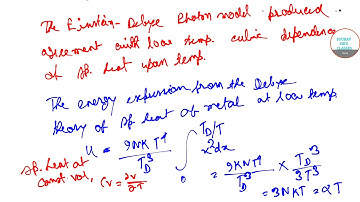 The Einstein-Debye Photon model produced
agreement with low temp. cubic dependence
of sp. heat upon temp.
The energy expression from the Debye
theory of sp. heat of metal at low temp.
U = 9NKT⁴/T_D³ ∫₀^{T_D/T} x²dx
= 9KNT⁴/T_D³ × T_D³/3T³
= 3NKT = αT
Sp. heat at
const vol, Cv = ∂U/∂T